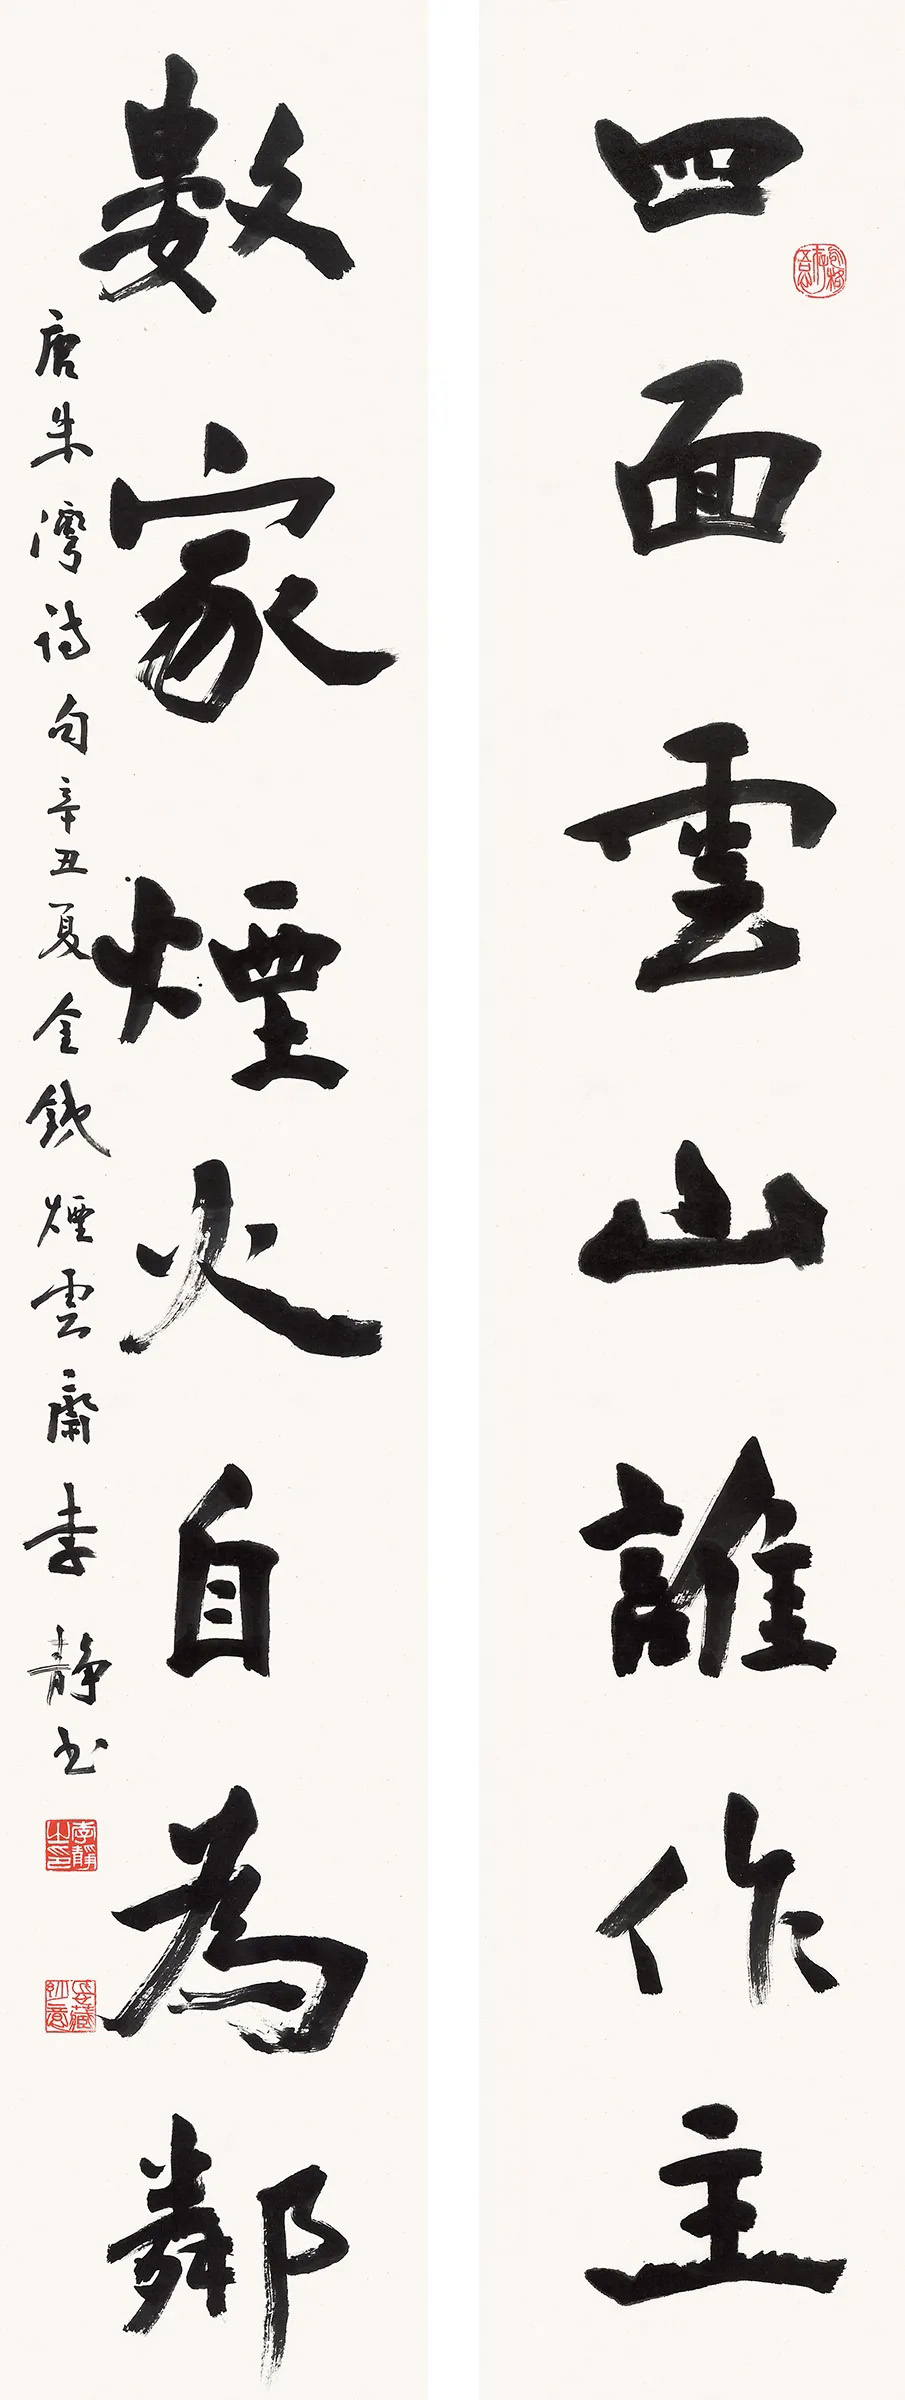 四面雲山誰作主
數家煙火自為鄰
唐朱灣詩句辛丑夏金錢煙雲齋李靜书
李靜之印